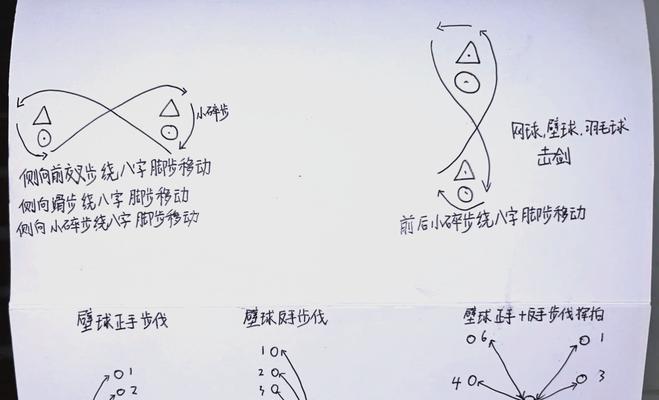 小碎步
侧向前交叉步绕八字脚步移动
侧向滑步绕八字脚步移动
侧向小碎步绕八字脚步移动
网球,壁球,羽毛球
击剑
前后小碎步绕八字脚步移动
壁球正手步伐
1
2
壁球反手步伐
1
2
3
壁球正手+反手步伐挥拍
6
1
4
3